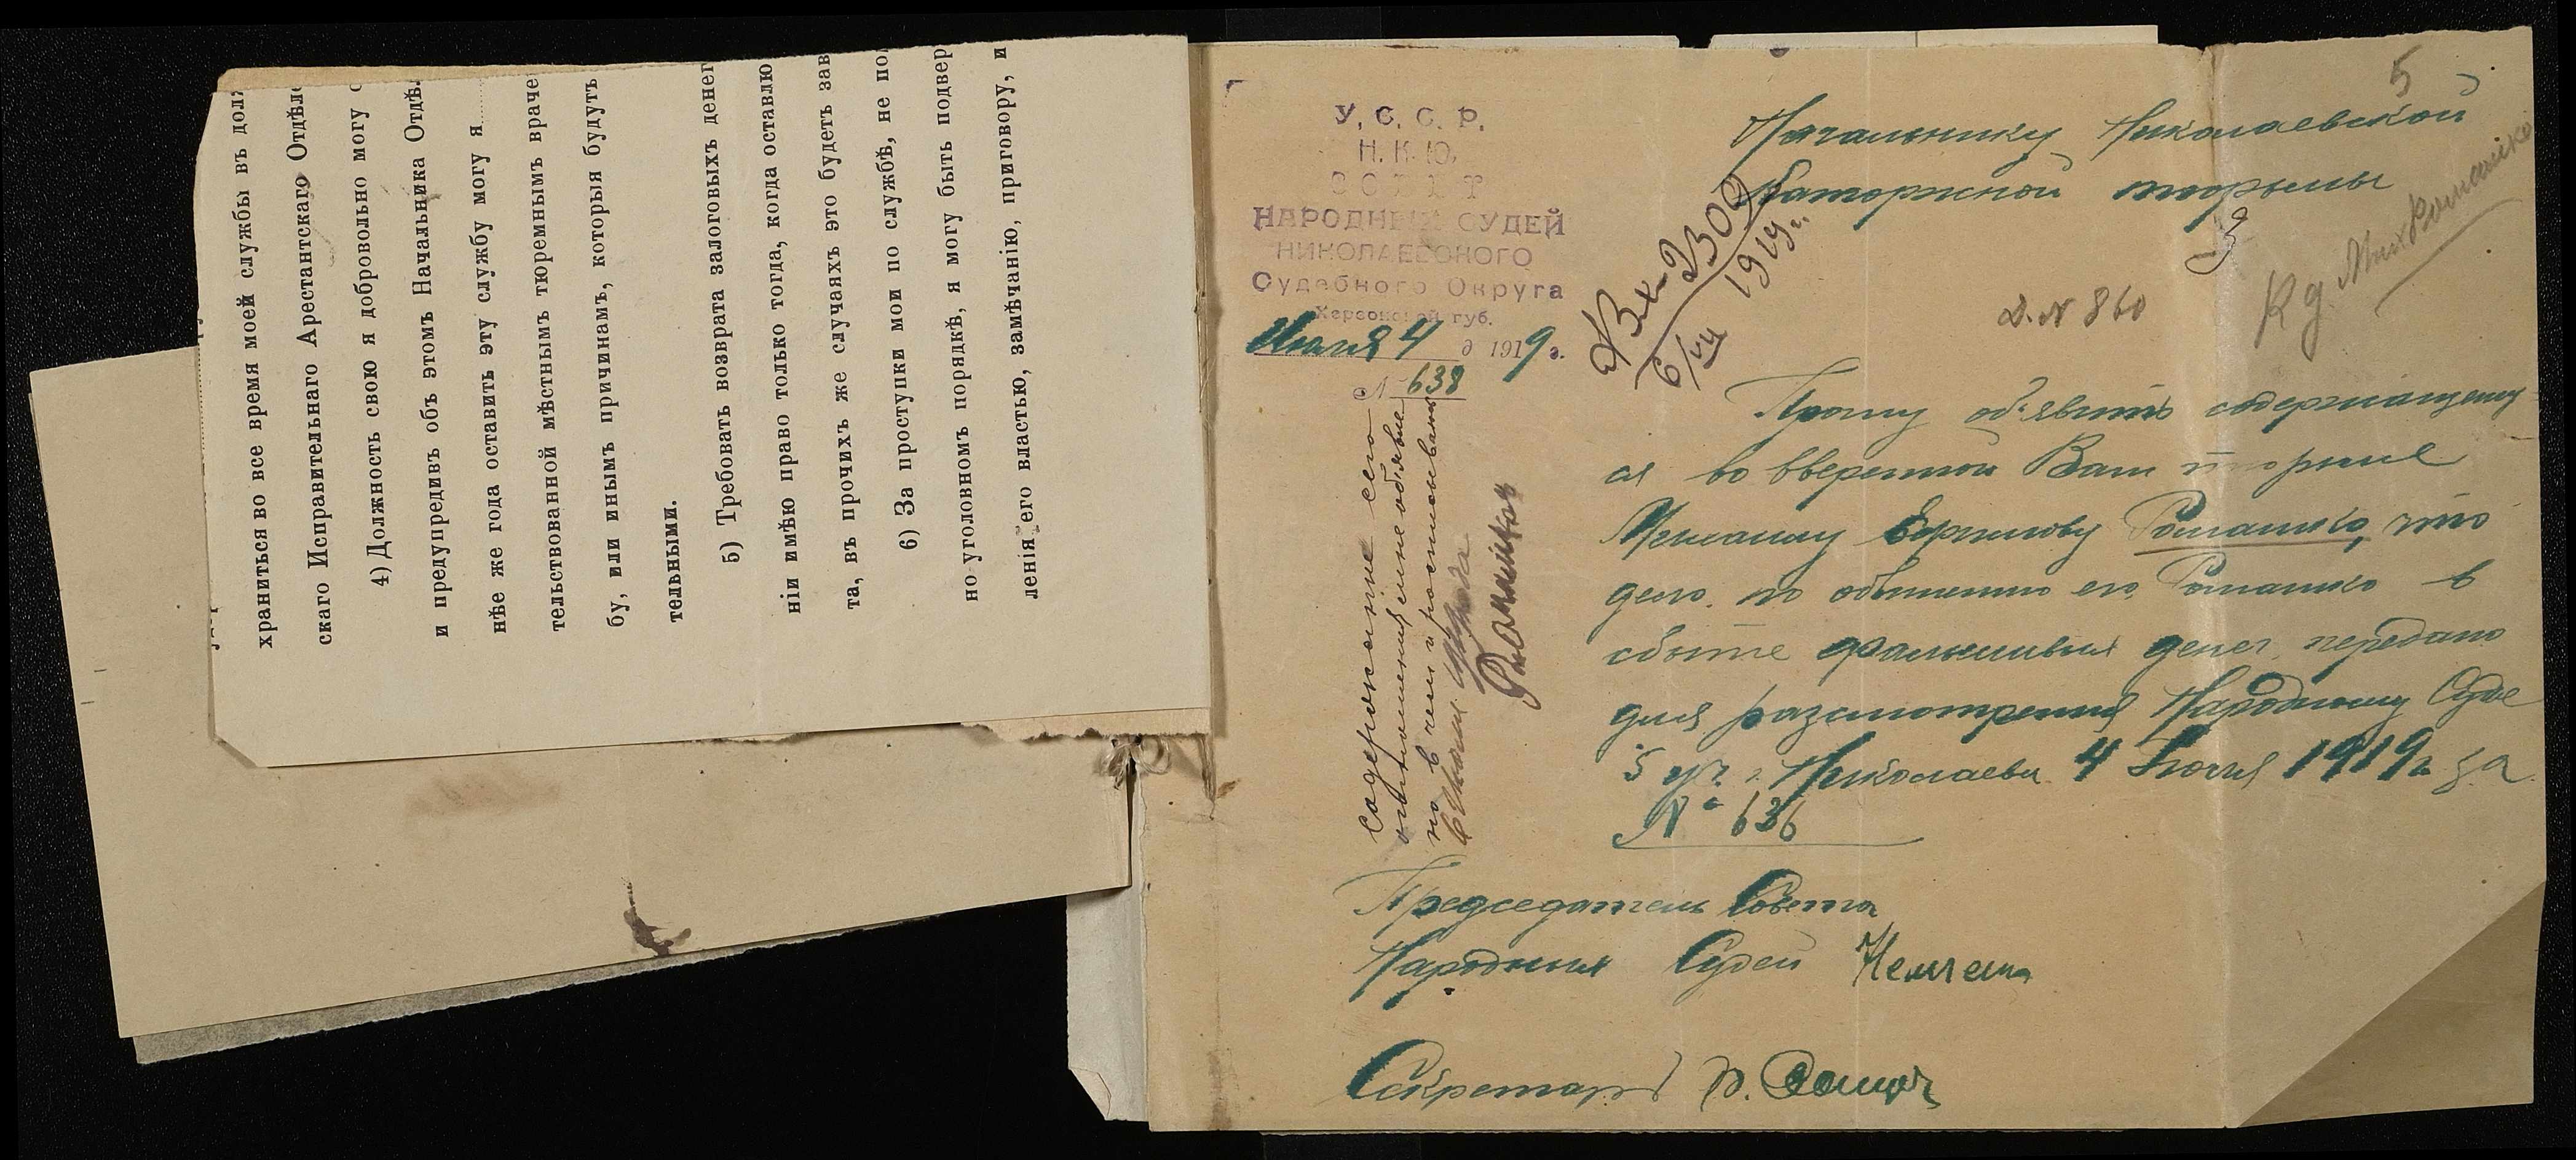 храниться во все время моей службы въ дол
скаго Исправительнаго Арестантскаго Отдѣле
4) Должность свою я добровольно могу о
и предупредивъ объ этомъ Начальника Отдѣ
нѣе же года оставить эту службу могу я
тельствованной мѣстнымъ тюремнымъ враче
бу, или инымъ причинамъ, которыя будутъ
тельными.
5) Требовать возврата залоговыхъ денег
ніи имѣю право только тогда, когда оставлю
та, въ прочихъ же случаяхъ это будетъ зав
6) За проступки мои по службѣ, не по
но уголовномъ порядкѣ, я могу быть подвер
ленія его властью, замѣчанію, приговору, и
У. С. С. Р.
Н. К. Ю.
СОВѢТ
НАРОДНЫХ СУДЕЙ
НИКОЛАЕВСКОГО
Судебного Округа
Херсонской губ.
Июля 4 д 1919 г.
№ 638
Вх-2300
6/VII 1919 г.
5
Начальнику Николаевской
Каторжной тюрьмы
Д. № 860
К д. Мих Ромашко
Прошу об'явить содержащему
ся во вверенной Вам тюрьме
Ромашко, что
дело по обвинению его Ромашко в
сбыте фальшивых денег передано
для разсмотрения Народному Суде
5 уч. г. Николаева 4 Июля 1919 г. за
№ 636
Содержание сего
отношения мне об'явле
но в чем и росписываюсь
6 Июля 1919 года
Ромашко
Председатель Совета
Народных Судей
Секретарь